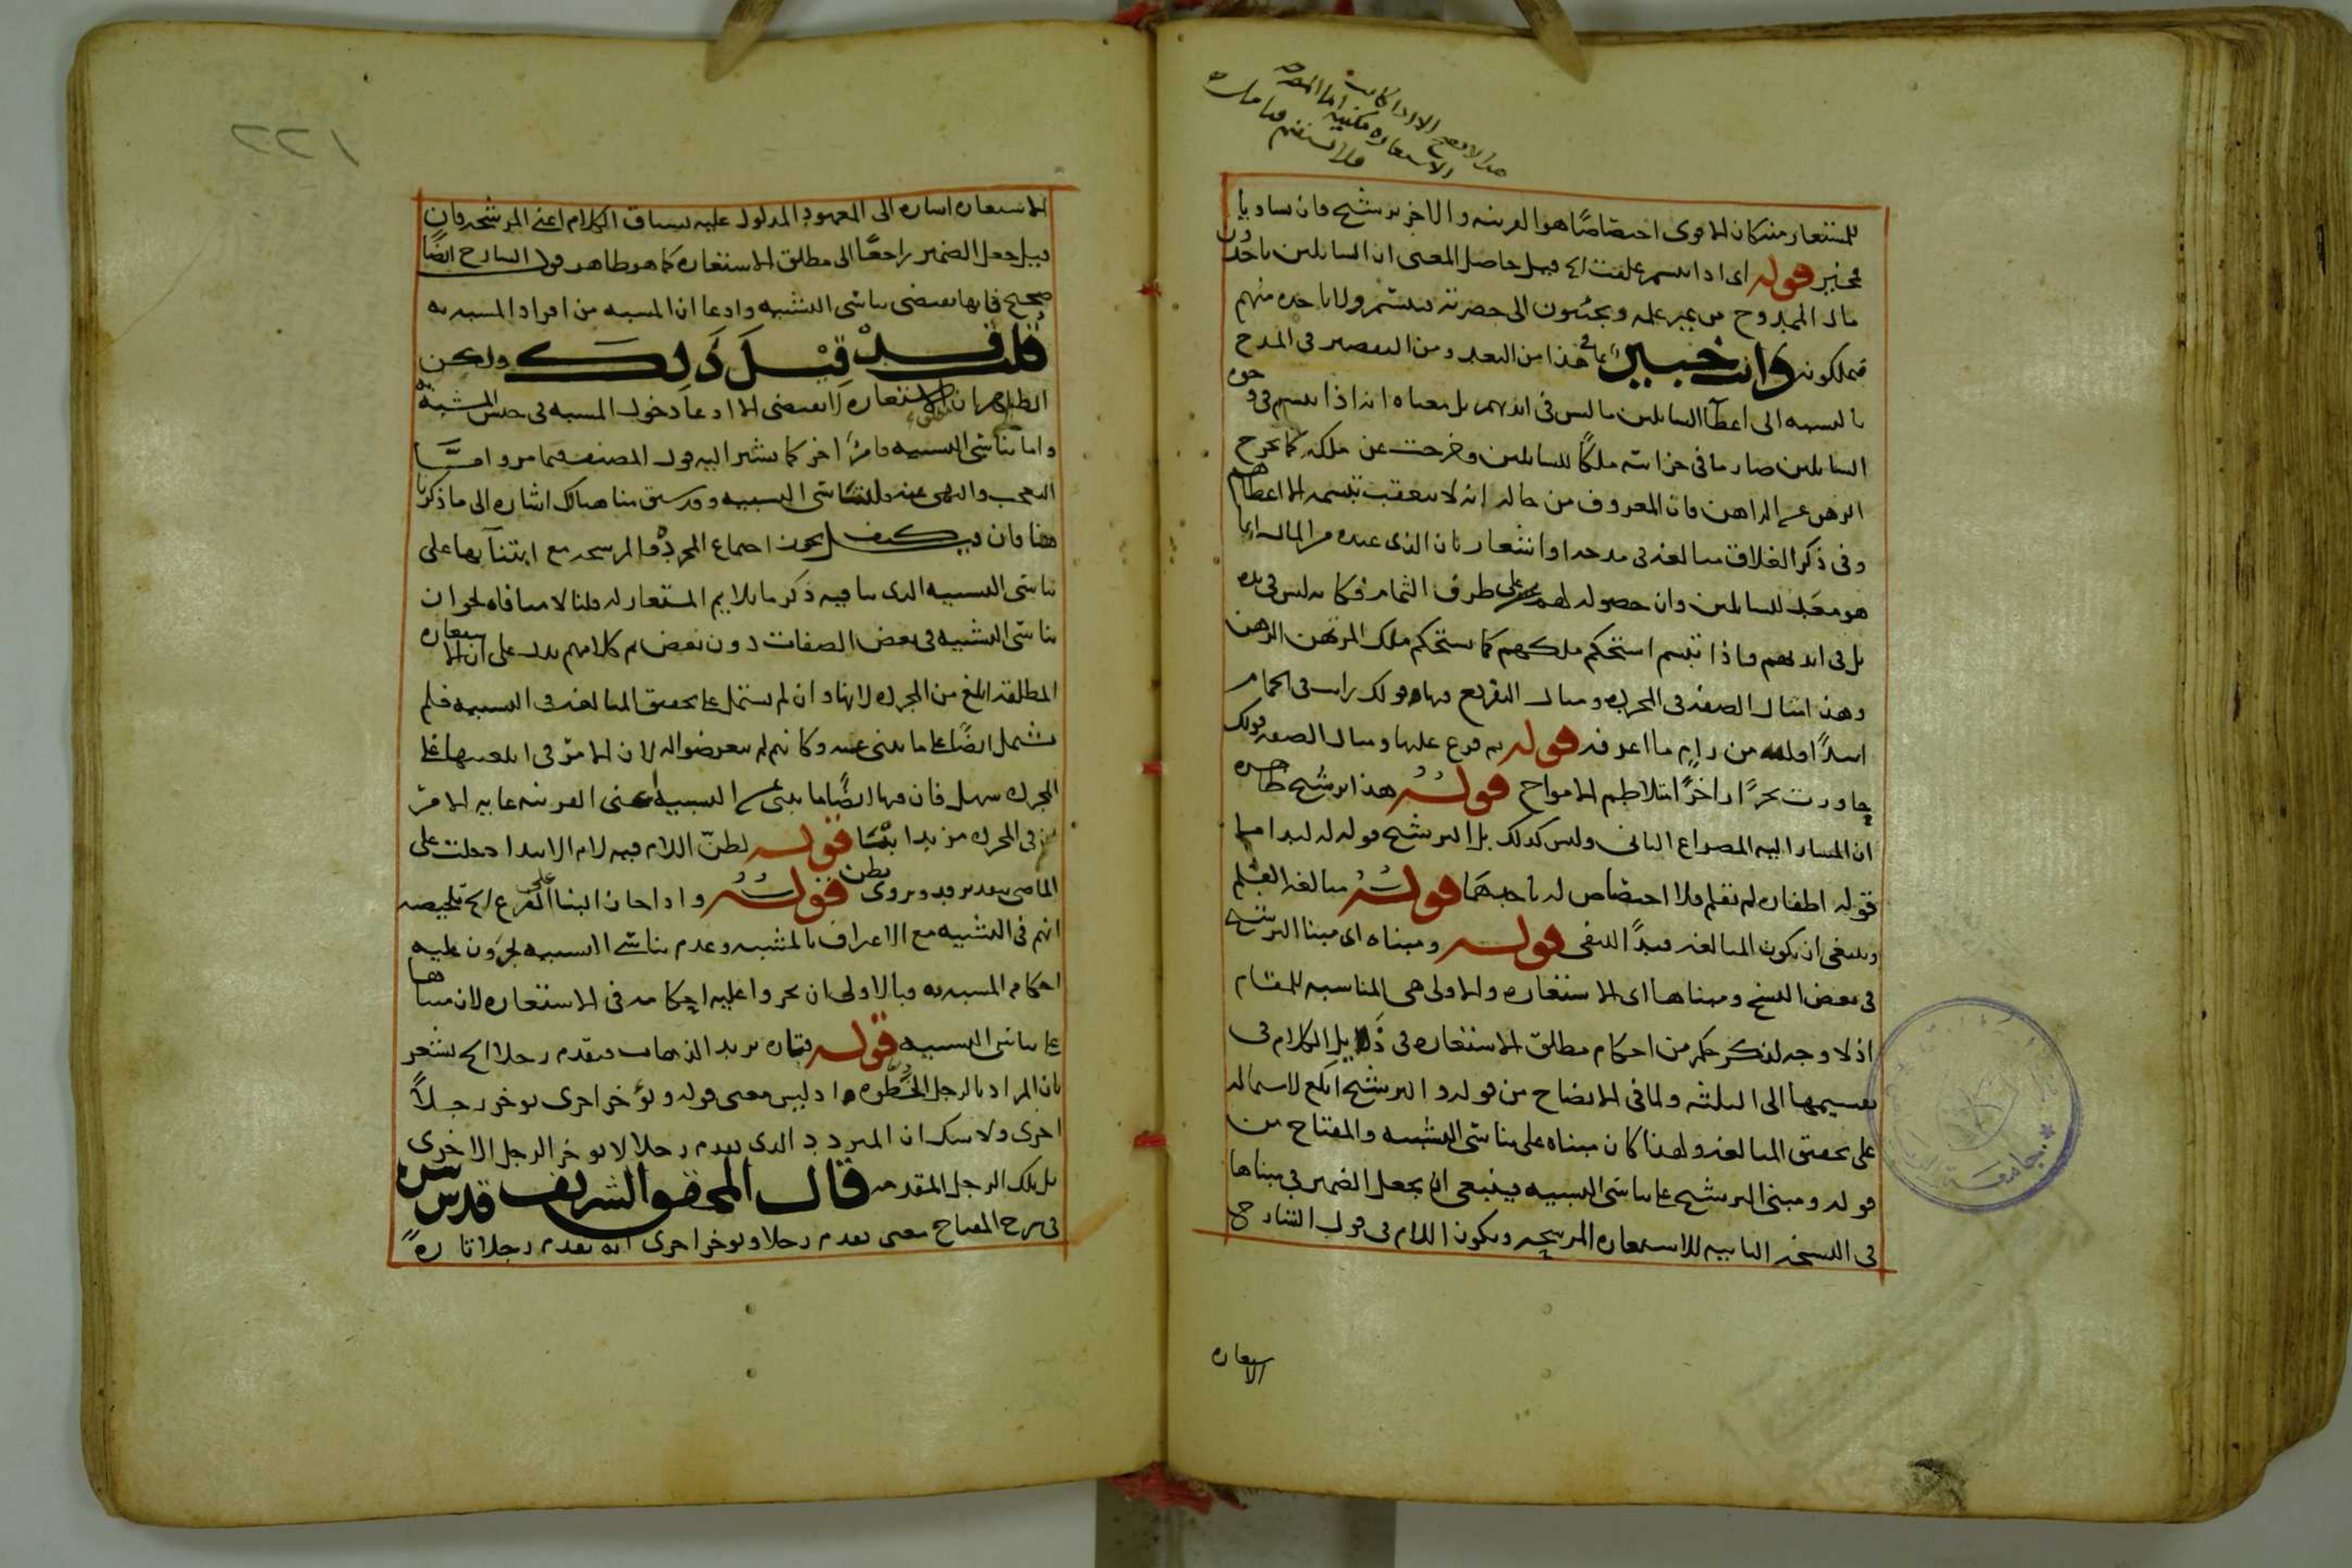 للمستعار منه كان الاقوى اختصاصا هو القرينه والاخر ترشيح فان ساويا
مخير قوله اى اذا تبسم غلقت الخ قيل حاصل المعنى ان السائلين ياخذون
مال الممدوح من غير علمه ويجيئون الى حضرته فيتبسم ولا ياخذه منهم
فيملكونه وانت خبير بما فى هذا من البعد ومن التقصير فى المدح
بالنسبه الى اعطآ السائلين ما ليس فى ايديهم بل معناه انه اذا تبسم فى وجوه
السايلين صار ما فى خزانته ملكا للسايلين وخرجت عن ملكه كما يخرج
الرهن عن الراهن فان المعروف من حاله انه لا يتعقب تبسمه الا اعطاهم
وفى ذكر الغلاق مبالغه فى مدحه اواشعار بان الذى عنده من المال انما
هو معد للسايلين وان حصوله لهم على طرف الثمام فكانه ليس فى يده
بل فى ايديهم فاذا تبسم استحكم ملكهم كما يستحكم ملك المرتهن الرهن
وهذا مثال الصفه فى المجرده ومثال التفريع فيها قولك رايت فى الحمام
اسدا من رام ما اعرفه قوله ثم فرع عليها ومثال الصفه قولك
جاورت بحرا زاخرا متلاطم الامواج قوله هذا ترشيح ظاهره
ان المشار اليه المصراع الثانى وليس كذلك بل الترشيح قوله له لبد اما
قوله اظفاره لم تقلم فلا اختصاص له باحدهما قوله مبالغه القلم
وينبغى ان يكون المبالغه قيدا للنفى قوله ومبناه اى مبنا الترشيح
فى بعض النسخ ومبناها اى الاستعاره والاولى هى المناسبه للمقام
اذ لا وجه لذكر حكم من احكام مطلق الاستعاره فى ذيل الكلام فى
تقسيمها الى الثلثه ولما فى الايضاح من قوله والترشيح ابلغ لاشتماله
على تحقيق المبالغه ولهذا كان مبناه على تناسى التشبيه والمفتاح من
قوله ومبنى الترشيح على تناسى التشبيه فينبغى ان يجعل الضمير فى مبناها
فى النسخه الثانيه للاستعاره المرشحه ويكون اللام فى قول الشارح
الاستعاره
١٢٢
الاستعاره اشاره الى المعهود المدلول عليه بسياق الكلام اعنى المرشحه فان
قيل جعل الضمير راجعا الى مطلق الاستعاره كما هو ظاهر قول الشارح ايضا
صحيح فانها تقتضى تناسى التشبيه وادعا ان المشبه من افراد المشبه به
قلت قد قيل ذلك ولكن
الظاهر ان الاستعاره لا تقتضى الا ادعآ دخول المشبه فى جنس المشبه به
واما تناسى التشبيه فامر اخر كما يشير اليه قول المصنف فيما مر واما
التعجب والنهى عنه فلتناسى التشبيه وقد سبق منا هناك اشاره الى ما ذكرنا
ههنا فان قيل كيف يجوز اجتماع المجرده والمرشحه مع ابتنآيها على
تناسى التشبيه الذى ينافيه ذكر ما يلايم المستعار له قلنا لا منافاه لجواز
تناسى التشبيه فى بعض الصفات دون بعض ثم كلامهم يدل على ان الاستعاره
المطلقه ابلغ من المجرده لانها وان لم يشتمل على تحقيق المبالغه فى التشبيه فلم
يشتمل ايضا على ما ينبى عنه وكانهم لم يتعرضوا له لان الامر فى ابلغيتها على
المجرده سهل فان فيها ايضا ما ينبى عن التشبيه اعنى القرينه غايه الامر
ان فى المجرده مزيد انبآ قوله لظن اللام فيه لام الابتدا دخلت على
الماضى بتقدير قد ويروى يظن قوله واذا جاز البنا على الفرع الخ تلخيصه
انهم فى التشبيه مع الاعتراف بالمشبه وعدم تناسى التشبيه يجرون عليه
احكام المشبه به فبالاولى ان يجروا عليه احكامه فى الاستعاره لان مبناها
على تناسى التشبيه قوله فتاره يريد الذهاب فيقدم رجلا الخ يشعر
بان المراد بالرجل الخطوه اذ ليس معنى قوله وتؤخر اخرى يوخر رجلا
اخرى ولا شك ان المتردد الذى يقدم رجلا لا يوخر الرجل الاخرى
بل تلك الرجل المقدمه قال المحقق الشريف قدس سره
فى شرح المفتاح معنى تقدم رجلا وتوخر اخرى انه تقدم رجلا تاره